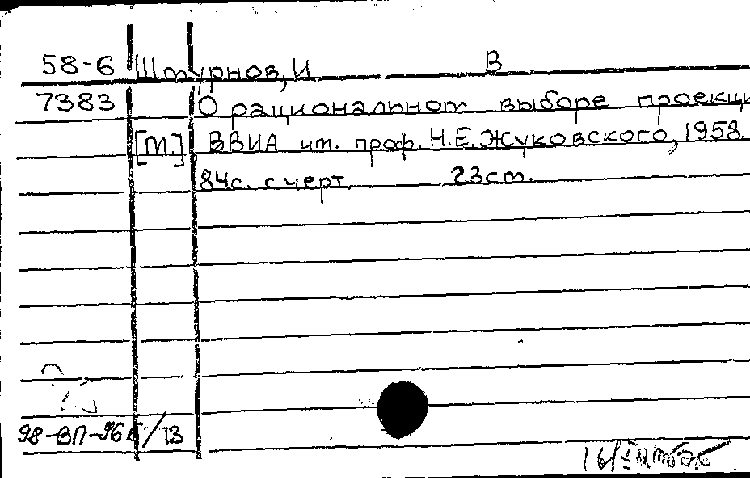 58-6 Штурнов, И В
7383 О рациональном выборе проекци
[М.] ВВИА им. проф. Н.Е. Жуковского, 1958.
84с. с черт. 23см.